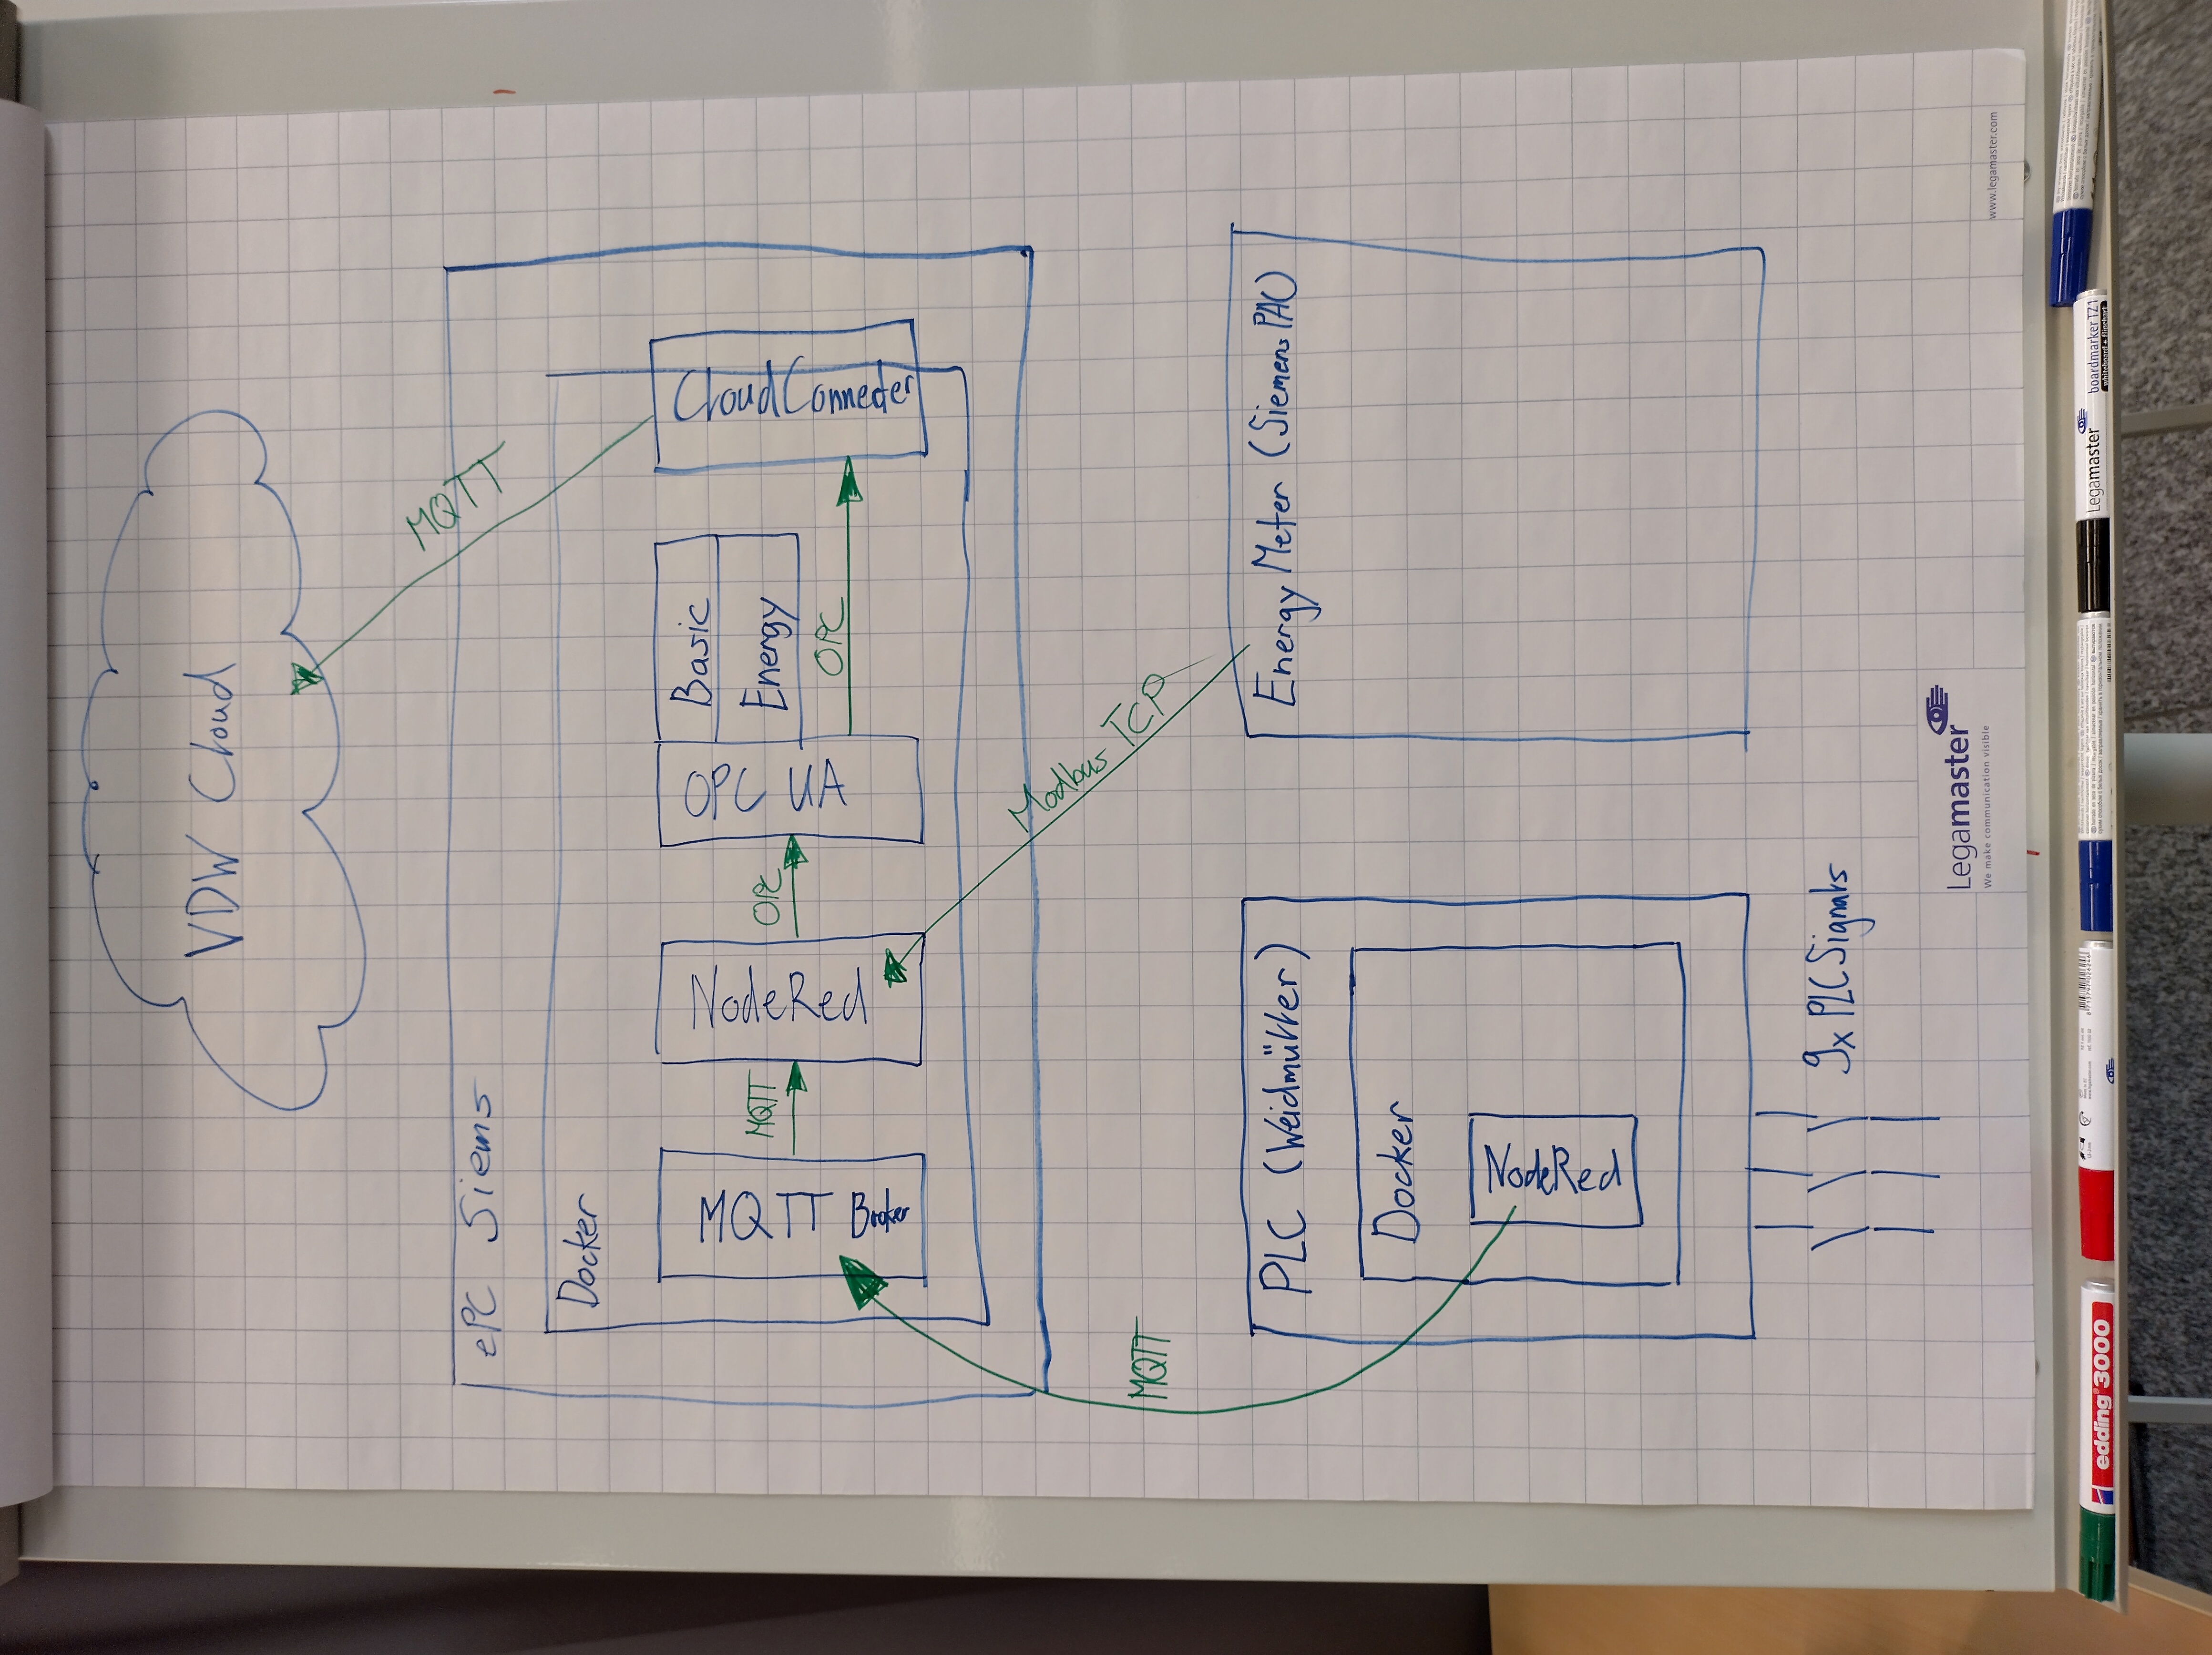 VDW Cloud
MQTT
ePC Siems
Docker
MQTT Broker
MQTT
NodeRed
OPC
OPC UA
Basic
Energy
OPC
CloudConnector
MQTT
Modbus TCP
PLC (Weidmüller)
Docker
NodeRed
Energy Meter (Siemens PAC)
9x PLC Signals
Legamaster
We make communication visible
www.legamaster.com
edding 3000
Legamaster
boardmarker TZ1
whiteboard + flipchart